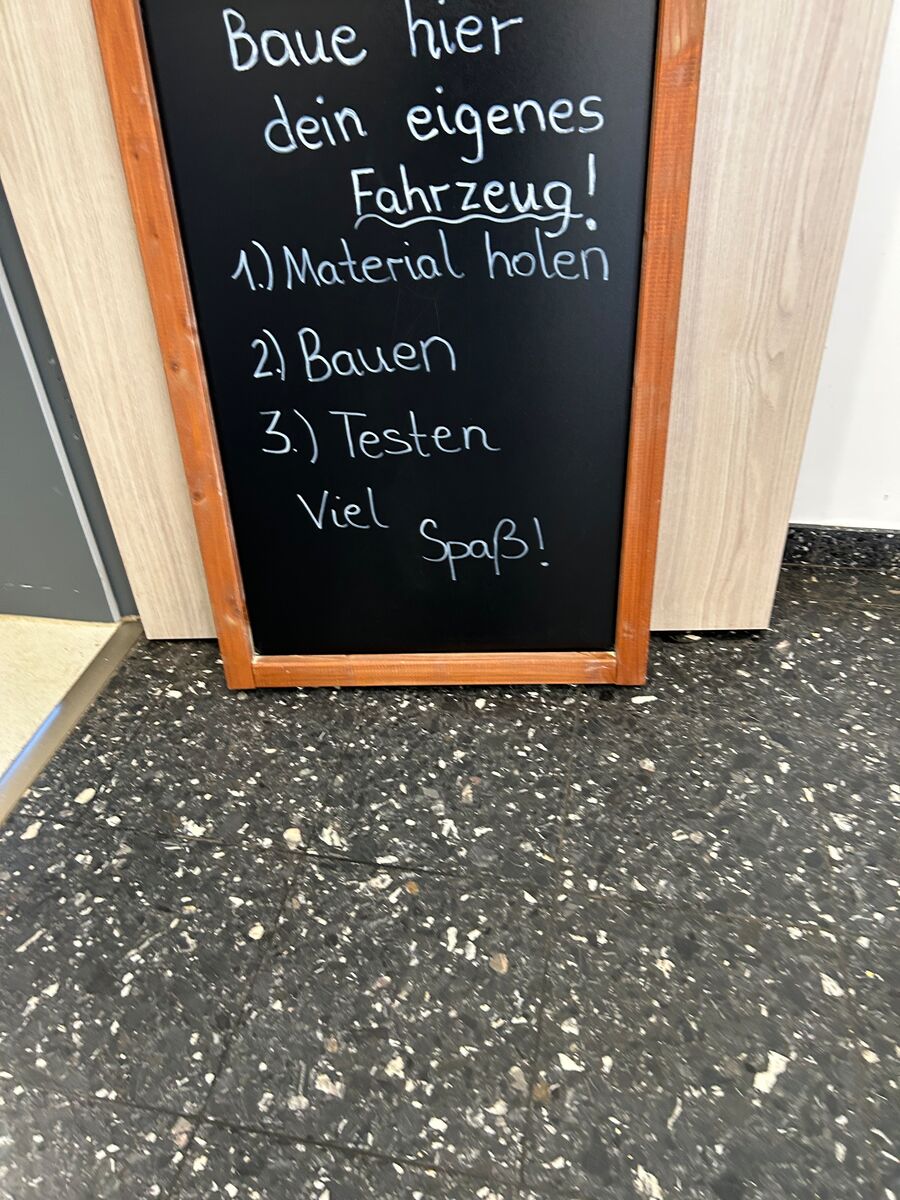 Baue hier
dein eigenes
Fahrzeug!
1.) Material holen
2.) Bauen
3.) Testen
Viel
Spaß!